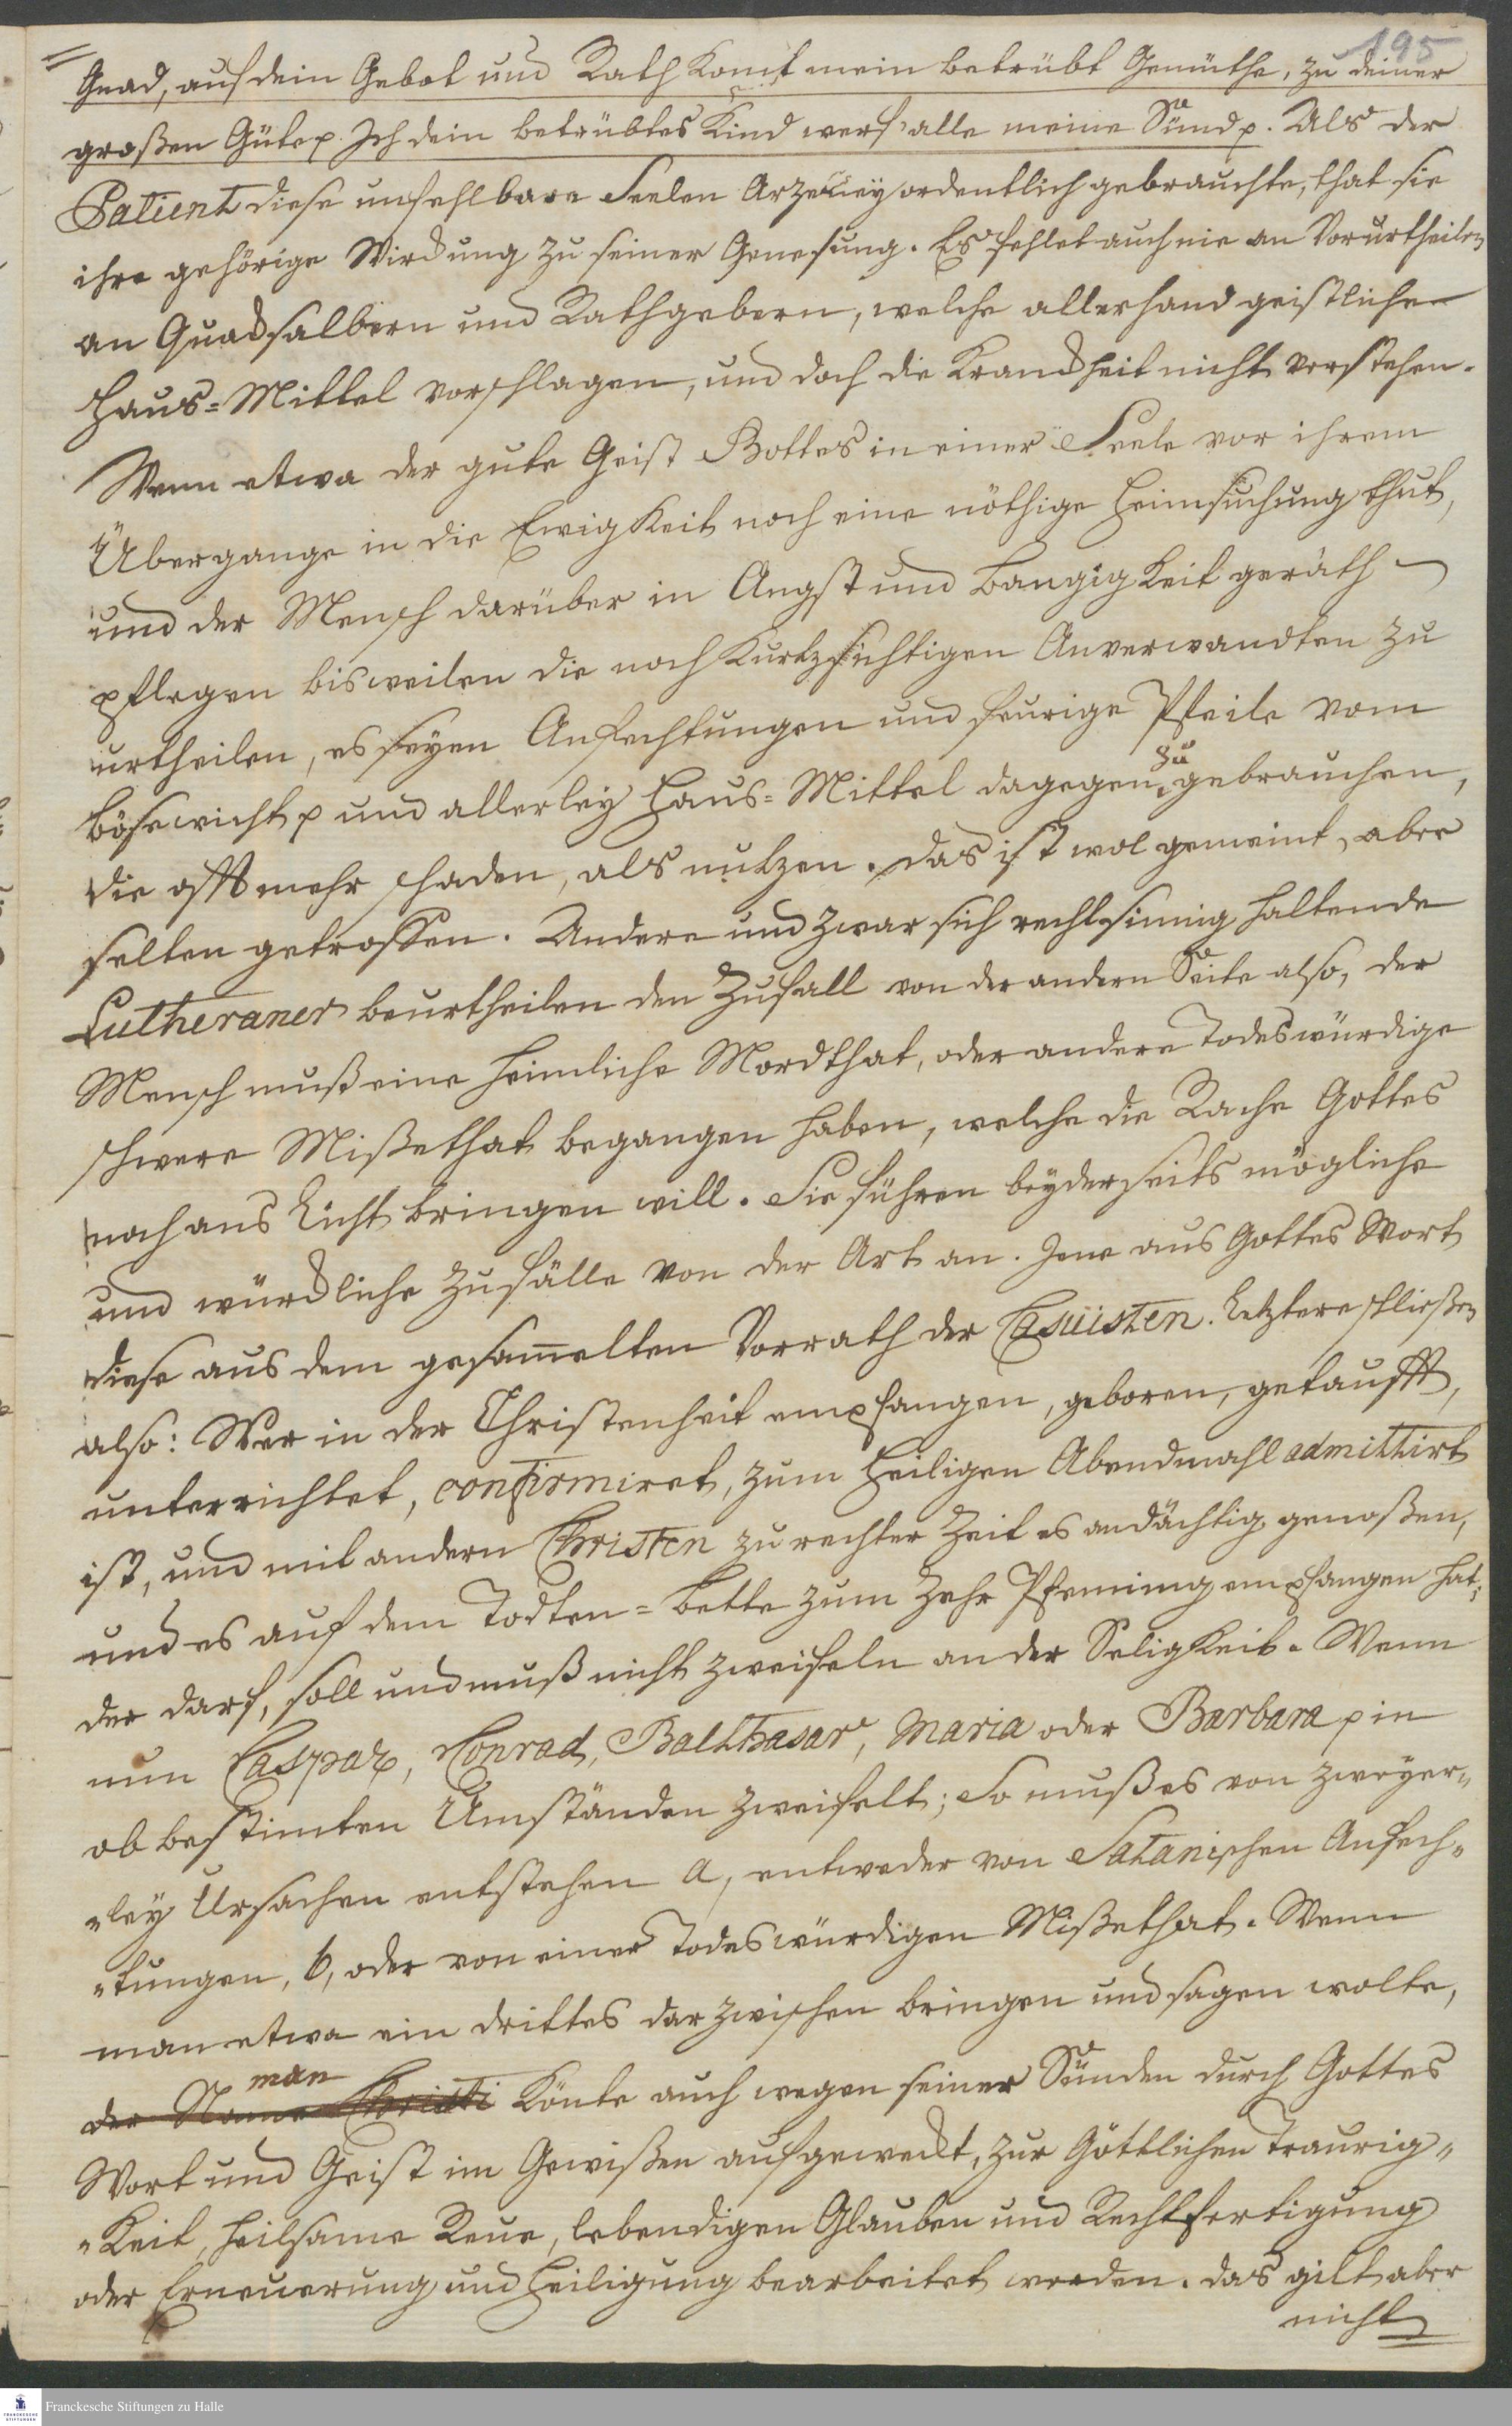 195
Gnad, auf dein Gebot und Rath komt mein betrübt Gemüthe, zu deiner
großen Güte p. Ich dein betrübtes Kind werf alle meine Sünd p. Als der
Patient diese unfehlbare Seelen Arzeney ordentlich gebrauchte, that sie
ihre gehörige Wirckung zu seiner Genesung. Es fehlet auch nie an Vorurtheilen
an Quacksalbern und Rathgebern, welche allerhand geistliche
Haus-Mittel vorschlagen, und doch die Kranckheit nicht verstehen.
Wenn etwa der gute Geist Gottes in einer Seele vor ihrem
Übergange in die Ewigkeit noch eine nöthige Heimsuchung thut,
und der Mensch darüber in Angst und Bangigkeit geräth
pflegen bisweilen die noch kurtzsichtigen Anverwandten zu
urtheilen, es seyen Anfechtungen und feurige Pfeile vom
Bösewicht p und allerley Haus-Mittel dagegen zu gebrauchen,
die offt mehr schaden, als nutzen. Das ist wol gemeint, aber
selten getroffen. Andere und zwar sich rechtsinnig haltende
Lutheraner beurtheilen den Zufall von der andern Seite also, der
Mensch muß eine heimliche Mordthat, oder andere Todeswürdige
schwere Mißethat begangen haben, welche die Rache Gottes
noch ans Licht bringen will. Sie führen beyderseits mögliche
und würckliche Zufälle von der Art an. Jene aus Gottes Wort
diese aus dem gesam̄elten Vorrath der Casuisten. Letztere schließen
also: Wer in der Christenheit empfangen, geboren, getaufft,
unterrichtet, confirmiret, zum Heiligen Abendmahl admittirt
ist, und mit andern Christen zu rechter Zeit es andächtig genoßen,
und es auf dem Todten-Bette zum Zehr Pfenning empfangen hat;
der darf, soll und muß nicht zweifeln an der Seligkeit. Wenn
nun Caspar, Conrad, Balthasar, Maria oder Barbara p in
ob bestimten Umständen zweifelt; So muß es von zweyer„
„ley Ursachen entstehen a, entweder von Satanischen Anfech„
„tungen, b, oder von einer Todeswürdigen Mißethat. Wenn
man etwa ein drittes darzwischen bringen und sagen wolte,
man
der Name Christi könte auch wegen seiner Sünden durch Gottes
Wort und Geist im Gewißen aufgeweckt, zur Göttlichen Traurig„
„keit, heilsame Reue, lebendigen Glauben und Rechtfertigung
oder Erneuerung und Heiligung bearbeitet werden. Das gilt aber
nicht
Franckesche Stiftungen zu Halle